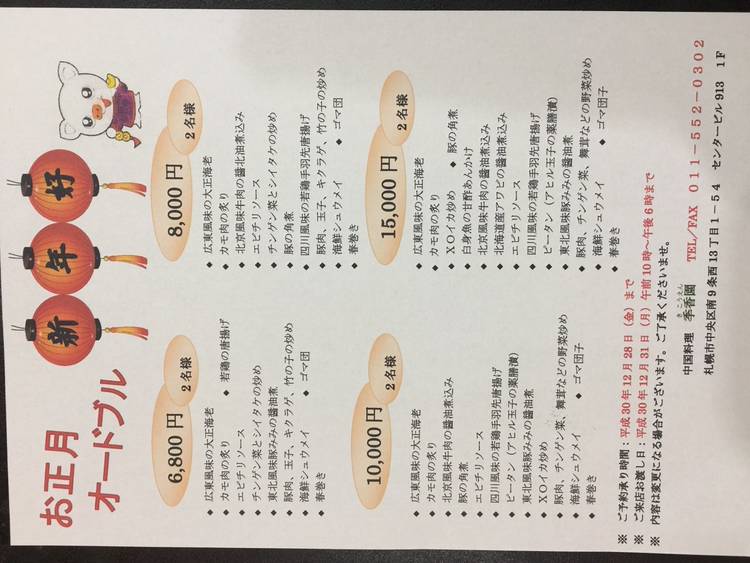 お正月
オードブル
新年好
6,800円 2名様
◆ 広東風味の大正海老
◆ カモ肉の炙り ◆ 若鶏の唐揚げ
◆ エビチリソース
◆ チンゲン菜とシイタケの炒め
◆ 東北風味豚みみの醤油煮
◆ 豚肉、玉子、キクラゲ、竹の子の炒め
◆ 海鮮シュウメイ ◆ ゴマ団
◆ 春巻き
8,000円 2名様
◆ 広東風味の大正海老
◆ カモ肉の炙り
◆ 北京風味牛肉の醤北油煮込み
◆ エビチリソース
◆ チンゲン菜とシイタケの炒め
◆ 豚の角煮
◆ 四川風味の若鶏手羽先唐揚げ
◆ 豚肉、玉子、キクラゲ、竹の子の炒め
◆ 海鮮シュウメイ ◆ ゴマ団
◆ 春巻き
10,000円 2名様
◆ 広東風味の大正海老
◆ カモ肉の炙り
◆ 北京風味牛肉の醤油煮込み
◆ 豚の角煮
◆ エビチリソース
◆ 四川風味の若鶏手羽先唐揚げ
◆ ピータン(アヒル玉子の薬膳漬)
◆ 東北風味豚みみの醤油煮
◆ XOイカ炒め
◆ 豚肉、チンゲン菜、舞茸などの野菜炒め
◆ 海鮮シュウメイ ◆ ゴマ団子
◆ 春巻き
15,000円 2名様
◆ 広東風味の大正海老
◆ カモ肉の炙り
◆ XOイカ炒め ◆ 豚の角煮
◆ 白身魚の甘酢あんかけ
◆ 北京風味牛肉の醤油煮込み
◆ 北海道産アワビの醤油煮込み
◆ エビチリソース
◆ 四川風味の若鶏手羽先唐揚げ
◆ ピータン(アヒル玉子の薬膳漬)
◆ 東北風味豚みみの醤油煮
◆ 豚肉、チンゲン菜、舞茸などの野菜炒め
◆ 海鮮シュウマイ ◆ ゴマ団子
◆ 春巻き
※ ご予約承り時間:平成30年12月28日(金)まで
※ ご来店お渡し日:平成30年12月31日(月)午前10時~午後6時まで
※ 内容は変更になる場合がございます。ご了承くださいませ。
中国料理 季香園 TEL/FAX 011-552-0302
き こうえん
札幌市中央区南9条西13丁目1-54 センタービル913 1F